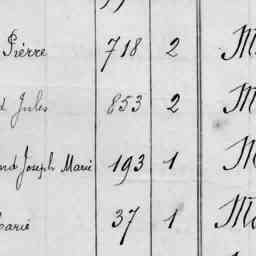 Pierre 718 2 M
Jules 853 2 M
Joseph Marie 193 1 M
Marie 37 1 Ma